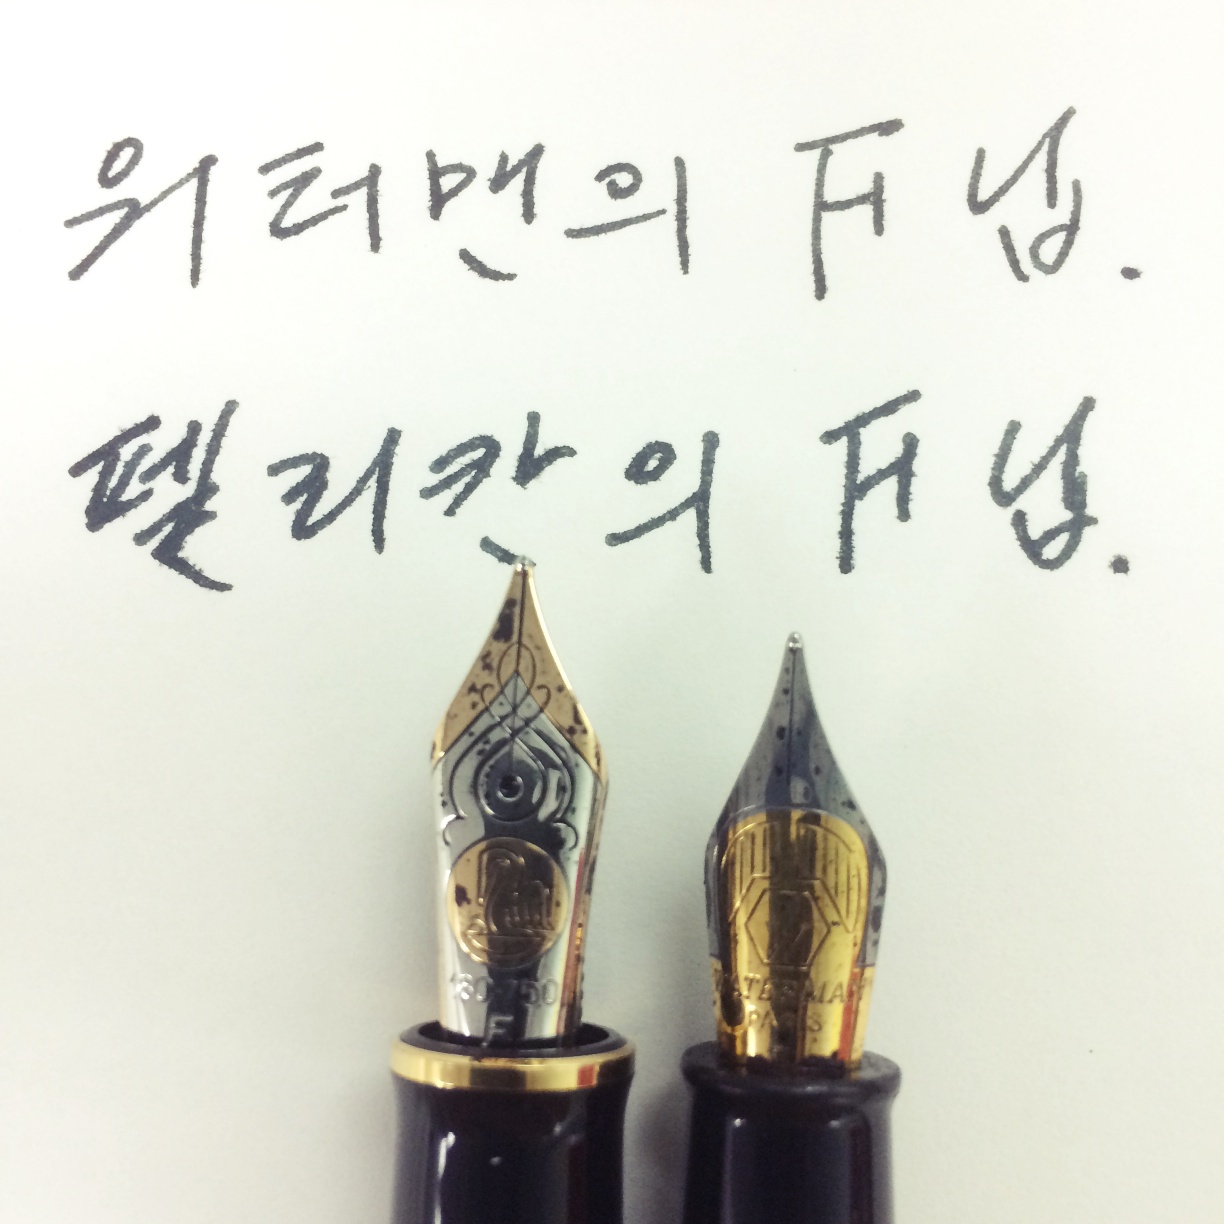 워터맨의 F 닙.
펠리칸의 F 닙.
18C-750
F
WATERMAN
PARIS